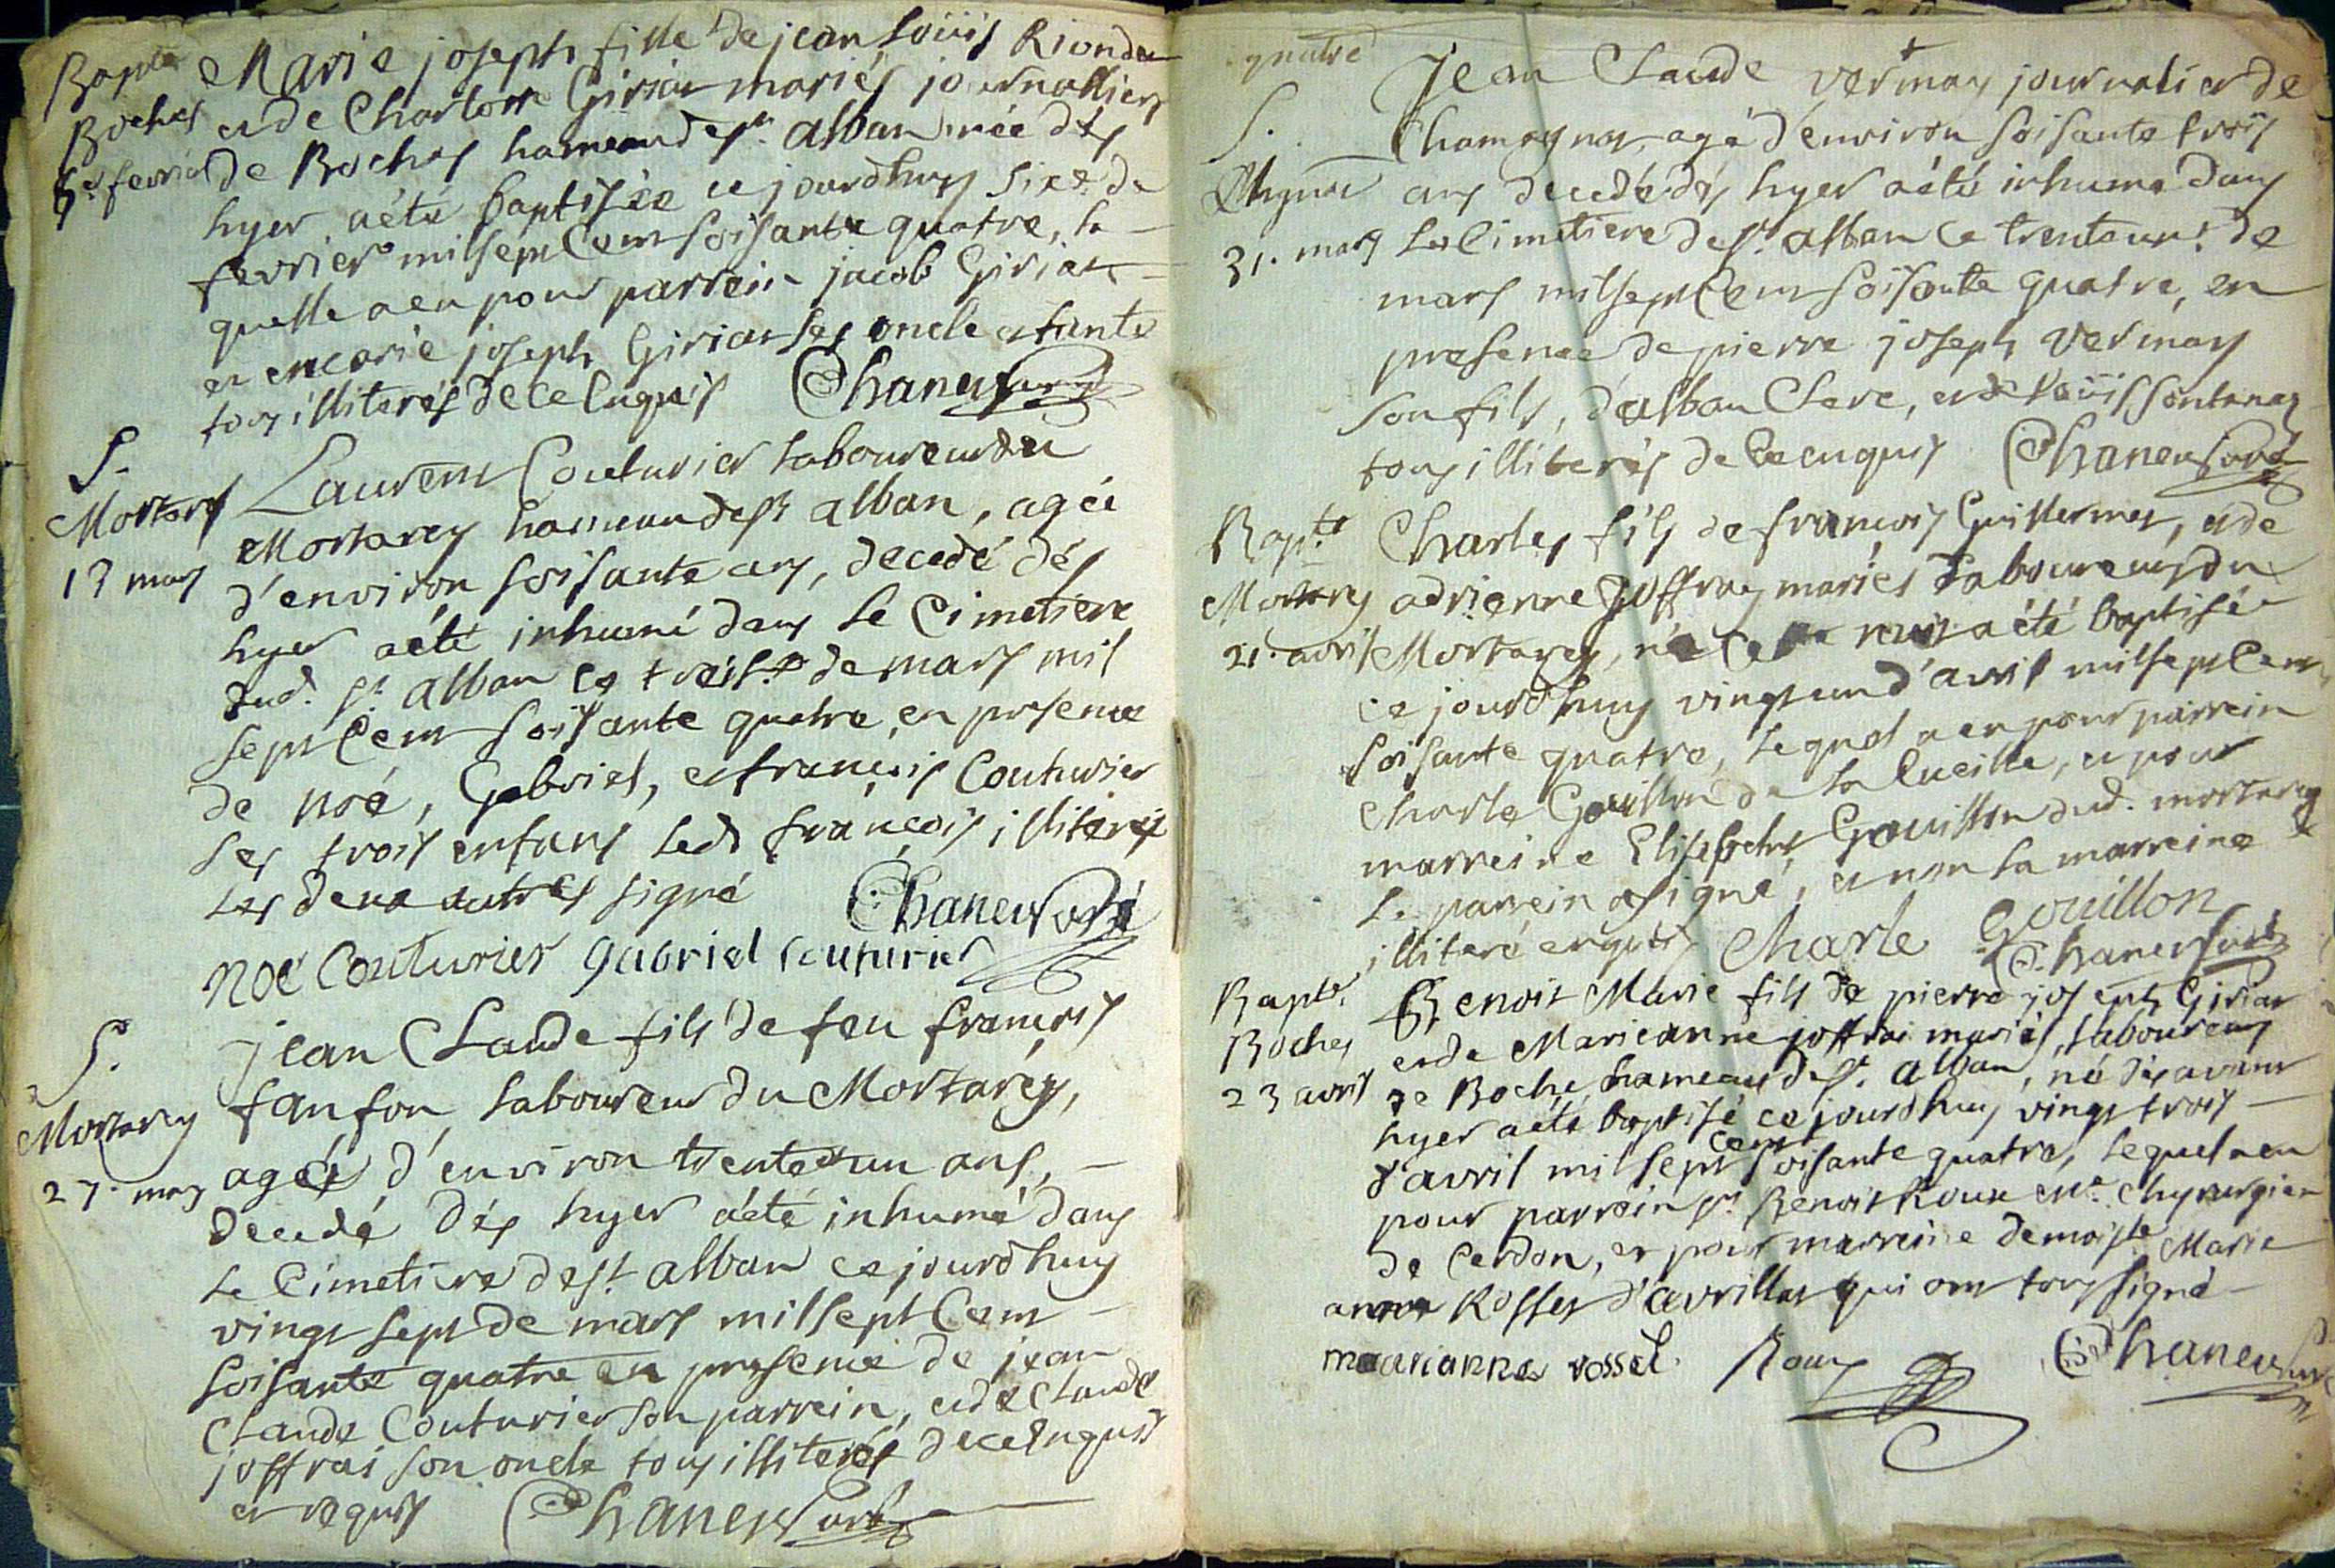 Bapte Marie joseph fille de jean Loüis Riondet
Boches et de Charlotte Giriat mariés journalliers
6e fevrier de Boches hameau de st. alban née dés
hyer a été baptisée ce jourdhuy sixe. de
fevrier mil sept Cent soisante quatre, la
quelle a eu pour parrain jacob Giriat
et marie joseph Giriat ses oncle et tante
tous illiterés de ce enquis Chaneu Curé
S. Laurent Couturier laboureur du
Mortarey Mortarey hameau de st alban, agéé
13 mars d'environ soisante ans, decedé dés
hyer a été inhumé dans le Cimetiere
dud. st. alban ce treise de mars mil
sept Cent soisante quatre, en presence
de noé, Gabriel, et françois Couturier
ses trois enfans led françois illiteré
les deux autres signé Chaneu Curé
noé Couturier gabriel couturier
S. jean Claude fils de feu françois
fanfon laboureur du Mortarey,
Mortarey
27. mars agéé d'environ trente et un ans,
decedé dés hyer a été inhumé dans
le Cimetiere de st. alban ce jourdhuy
vingt sept de mars mil sept Cent
soisante quatre en presence de jean
Claude Couturier son parrein, et de Claude
joffrai son oncle tous illiterés de ce enquis
et requis Chaneu Curé
quatre
Jean Claude vermay journalier de
S. Champagna, agé d'environ soisante trois
ans decedé dés hyer a été inhumé dans
31. mars le Cimetiere de st. alban ce trenteun. de
mars mil sept Cent soisante quatre, en
presence de pierre joseph vermay
son fils, d'alban Clere, et de Loüis fontanaz
tous illiterés de ce enquis Chaneu Curé
Bap.te Charles fils de françois Guillermet, et de
Mortarey adrienne joffray mariés laboureurs du
21. avril Mortarey, né cette nuit a été baptisé
ce jourdhuy vingt un d'avril mil sept Cent
soisante quatre, lequel a eu pour parrein
charle Gouillon de la Cueille, et pour
marreine Elisabeth Gouillon dud. mortarey
le parrein a signé, et non la marreine
illiteré enquis Charle Gouillon
Chaneu Curé
Bapte. Benoit Marie fils de pierre joseph Giriat
Boches et de Marieanne joffrai mariés, laboureurs
23 avril de Boche, hameau de st. alban, né dés avant
hyer a été baptisé ce jourdhuy vingt trois
d'avril mil sept cent soisante quatre, lequel a eu
pour parrein sr. Benoit Roux Me. chyrurgien
de Cerdon, et pour marreine demoisle Marie
anne Rosset d'avrillat qui ont tous signé
maarianne rossel. Roux Chaneu Curé